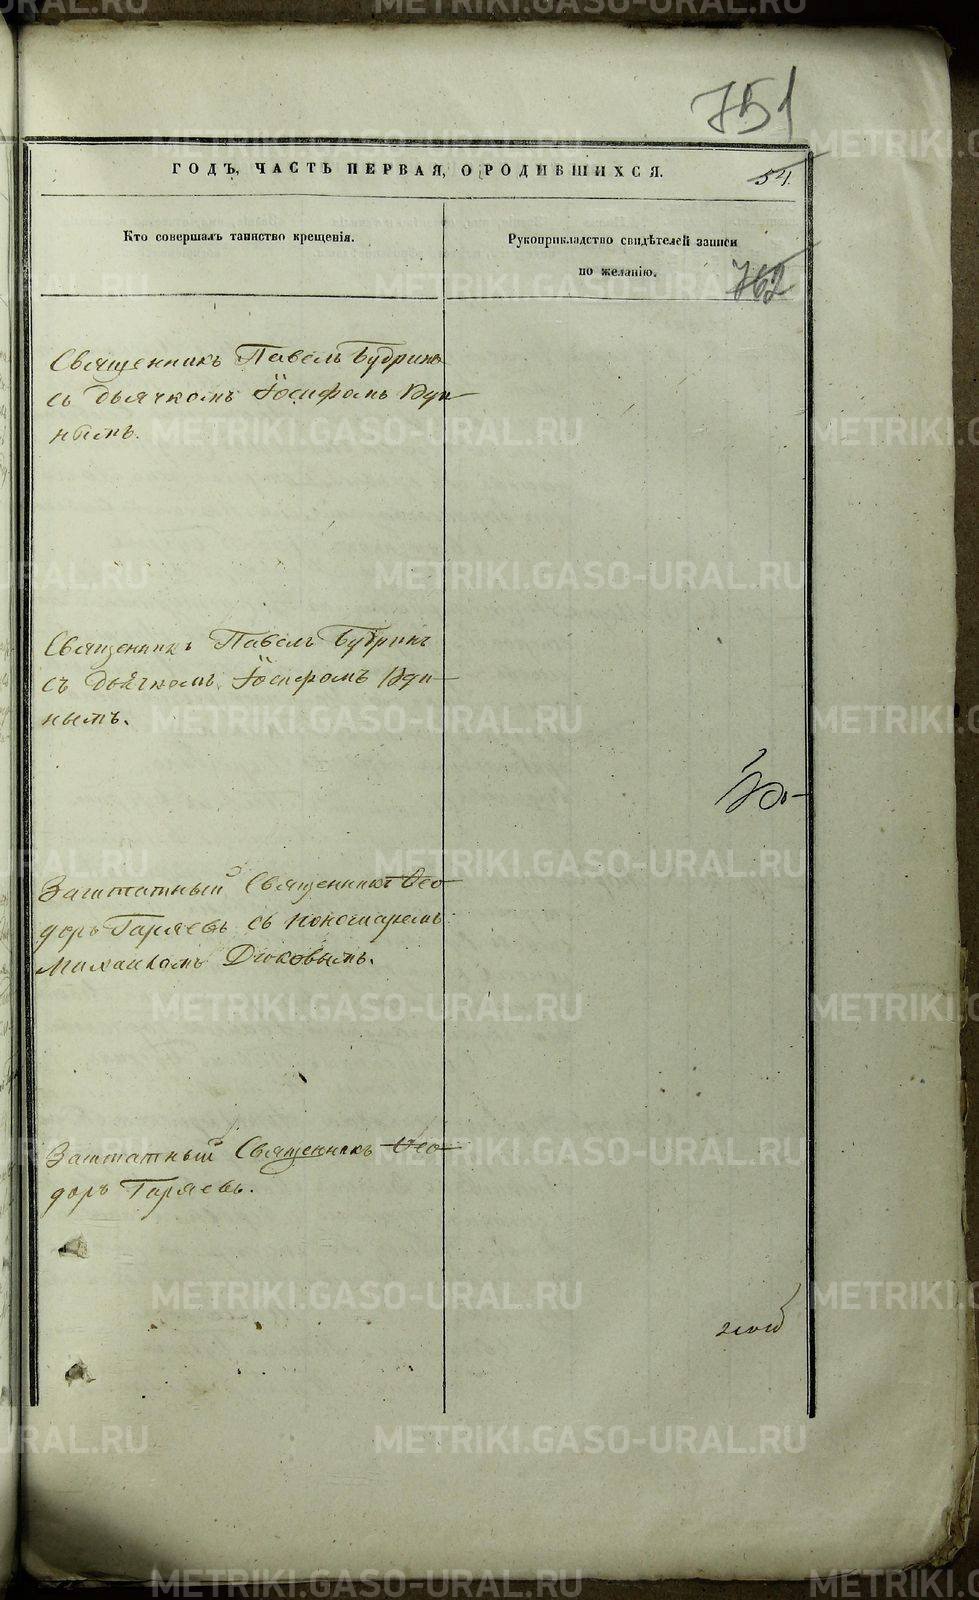 751
ГОДЪ, ЧАСТЬ ПЕРВАЯ, О РОДИВШИХСЯ.
54.
Кто совершалъ таинство крещенія.
Рукоприкладство свидѣтелей записи
по желанію.
762
Священникъ Павелъ Бубринъ
съ дьячкомъ Іосифомъ Юди-
нымъ.
Священникъ Павелъ Бубринъ
съ дьячкомъ Іосифомъ Юди-
нымъ.
Заштатный Священникъ Ѳео-
доръ Гаряевъ съ пономаремъ
Михаиломъ Дюковымъ.
Заштатный Священникъ Ѳео-
доръ Гаряевъ.
METRIKI.GASO-URAL.RU